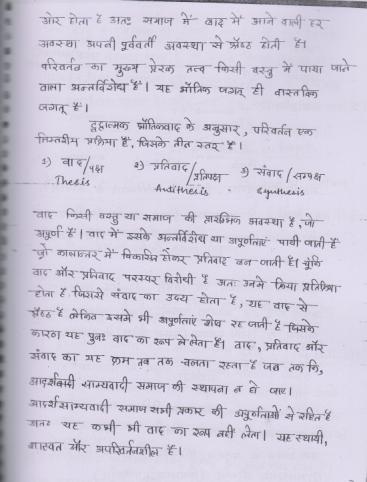 ओर होता है अतः समाज में बाद में आने वाली हर
अवस्था अपनी पूर्ववर्ती अवस्था से श्रेष्ठ होती है।
परिवर्तन का मुख्य प्रेरक तत्व किसी वस्तु में पाया जाने
वाला अन्तर्विरोध है। यह भौतिक जगत् ही वास्तविक
जगत् है।
द्वंद्वात्मक भौतिकवाद के अनुसार, परिवर्तन एक
त्रिस्तरीय प्रक्रिया है, जिसके तीन स्तर हैं।
1) वाद/पक्ष 2) प्रतिवाद/प्रतिपक्ष 3) संवाद/समपक्ष
Thesis Antithesis Synthesis
वाद किसी वस्तु या समाज की प्रारम्भिक अवस्था है, जो
अपूर्ण है। वाद में इसके अन्तर्विरोध या अपूर्णताएं पायी जाती हैं
जो कालान्तर में विकसित होकर प्रतिवाद बन जाती है। चूंकि
वाद और प्रतिवाद परस्पर विरोधी हैं अतः उनमें क्रिया प्रतिक्रिया
होता है जिससे संवाद का उदय होता है, यह वाद से
श्रेष्ठ है लेकिन इसमें भी अपूर्णताएं शेष रह जाती हैं जिसके
कारण यह पुनः वाद का रूप ले लेता है। वाद, प्रतिवाद और
संवाद का यह क्रम तब तक चलता रहता है जब तक कि,
आदर्शवादी साम्यवादी समाज की स्थापना न हो जाए।
आदर्श साम्यवादी समाज सभी प्रकार की अपूर्णताओं से रहित है
अतः यह कभी भी वाद का रूप नहीं लेता। यह स्थायी,
शाश्वत और अपरिवर्तनशील है।